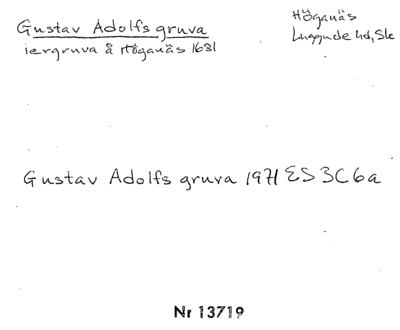 Gustav Adolfs gruva
Höganäs
Luggude hd, Sk
iergruva å Höganäs 1681
Gustav Adolfs gruva 1971 ES 3C6a
Nr 13719